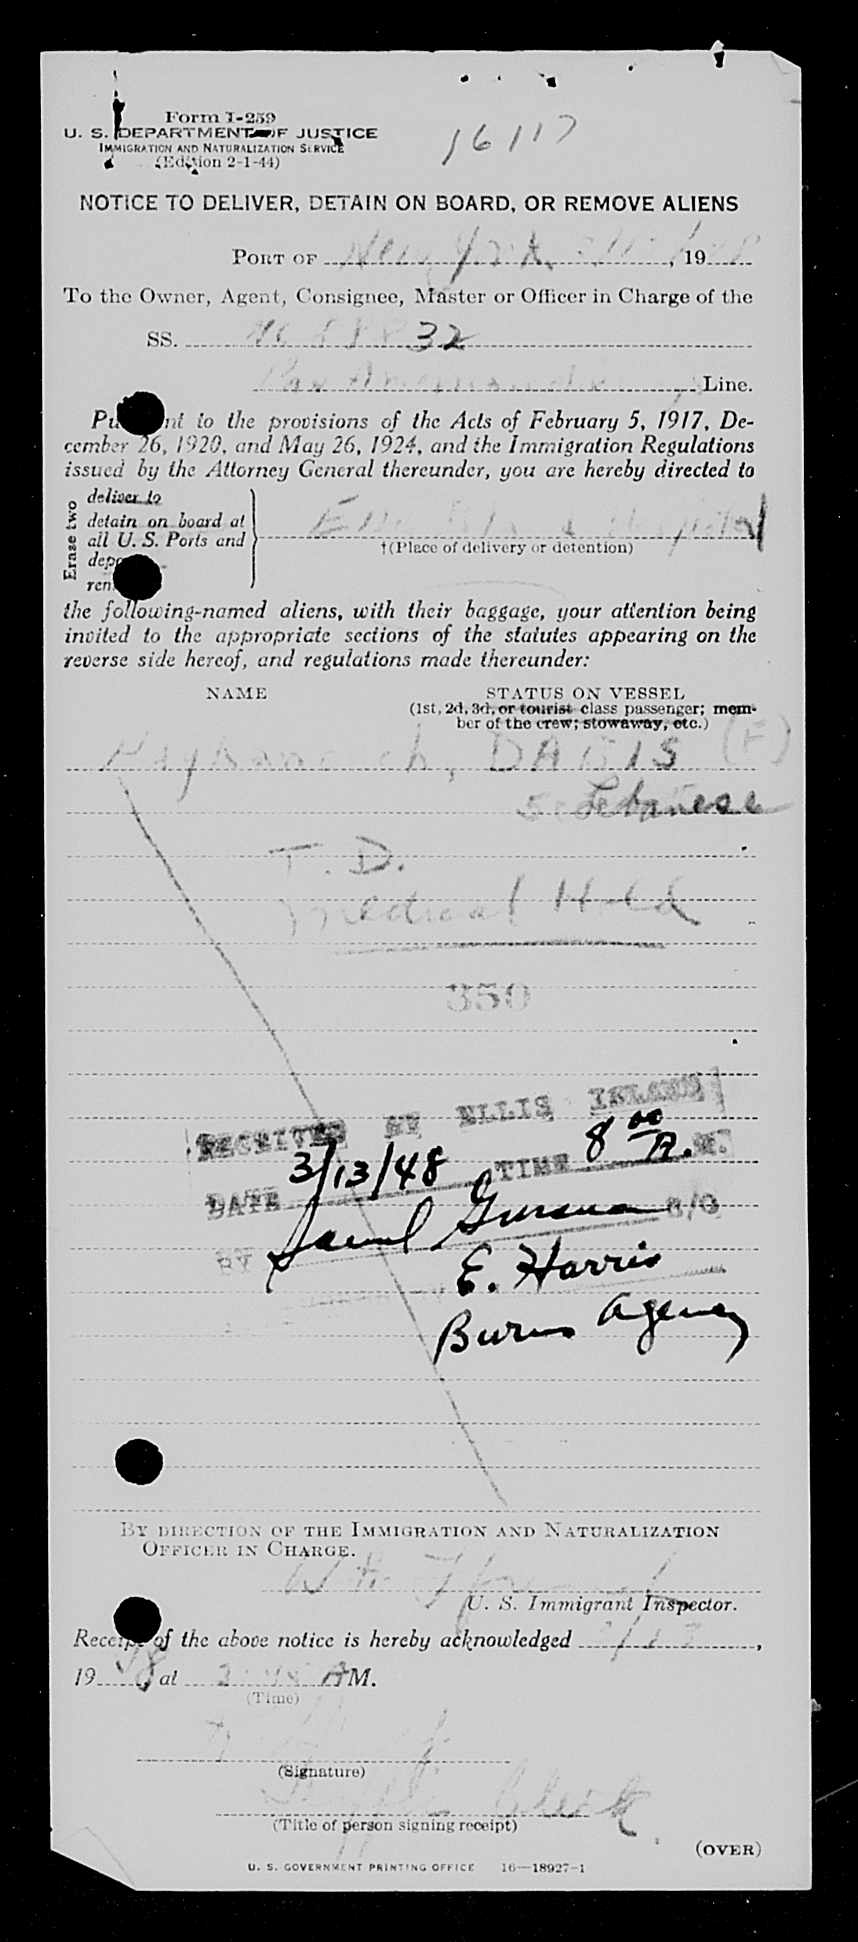 Form I-259
U. S. DEPARTMENT OF JUSTICE
IMMIGRATION AND NATURALIZATION SERVICE
(Edition 2-1-44)
16117
NOTICE TO DELIVER, DETAIN ON BOARD, OR REMOVE ALIENS
PORT OF New York, 19
To the Owner, Agent, Consignee, Master or Officer in Charge of the
SS. 32
Pan American Line.
Pursuant to the provisions of the Acts of February 5, 1917, De-
cember 26, 1920, and May 26, 1924, and the Immigration Regulations
issued by the Attorney General thereunder, you are hereby directed to
Erase two
deliver to
detain on board at
all U. S. Ports and
Ellis Island Hospital
†(Place of delivery or detention)
the following-named aliens, with their baggage, your attention being
invited to the appropriate sections of the statutes appearing on the
reverse side hereof, and regulations made thereunder:
NAME STATUS ON VESSEL
(1st, 2d, 3d, or tourist class passenger; mem-
ber of the crew; stowaway, etc.)
DABIS (F)
Lebanese
T. D.
Medical Hold
350
RECEIVED AT ELLIS ISLAND
DATE 3/13/48 TIME 8 00 A. M.
BY
E. Harris
Burns Agency
BY DIRECTION OF THE IMMIGRATION AND NATURALIZATION
OFFICER IN CHARGE.
U. S. Immigrant Inspector.
Receipt of the above notice is hereby acknowledged ,
19 48, at AM.
(Time)
(Signature)
Clerk
(Title of person signing receipt)
(OVER)
U. S. GOVERNMENT PRINTING OFFICE 16—18927-1